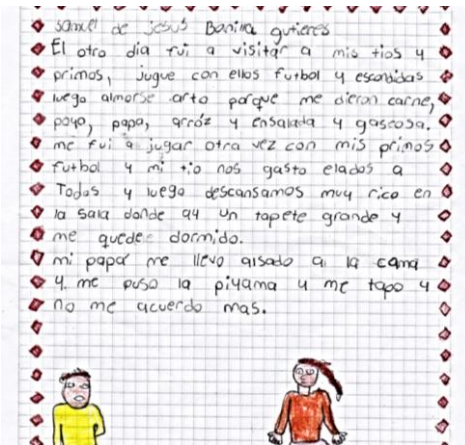 samuel de jesus Bonilla gutieres
El otro dia fui a visitar a mis tios y
primos, jugue con ellos futbol y escondidas
luego almorse arto porque me dieron carne,
poyo, papa, arróz y ensalada y gaseosa.
me fui a jugar otra vez con mis primos
futbol y mi tio nos gasto elados a
Todos y luego descansamos muy rico en
la sala donde ay un tapete grande y
me quede dormido.
mi papá me llevo alsado a la cama
y me puso la piyama y me tapo y
no me acuerdo mas.